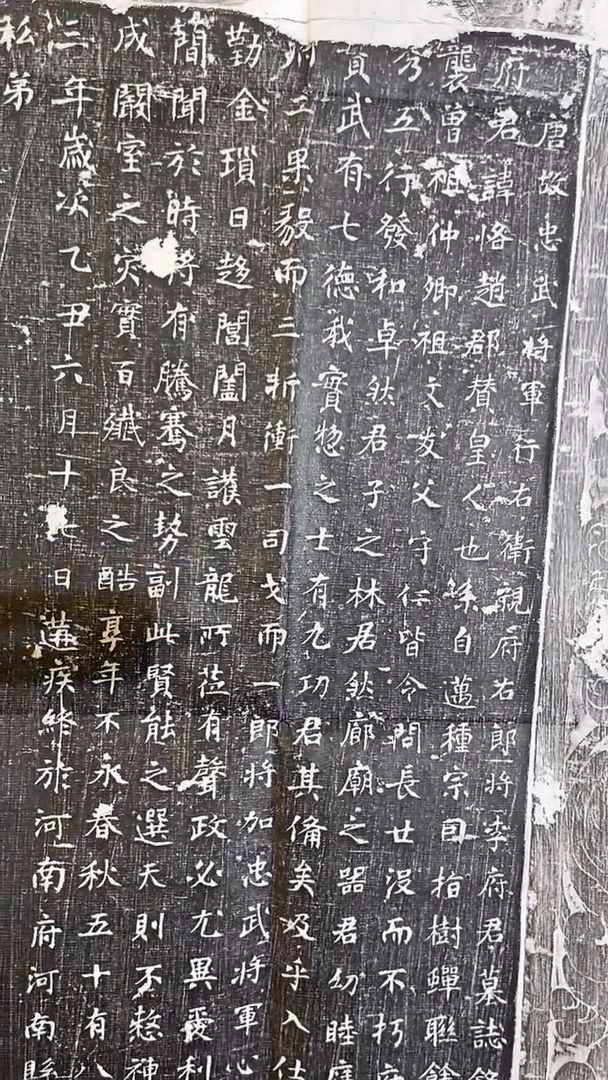 唐故忠武將軍行右衛親府右郎將李府君墓誌銘
府君諱恪趙郡賛皇人也系自邁種宗曰指樹蟬聯
襲曾祖仲卿祖文发父守仁皆令問長世没而不朽
五行發和卓然君子之林居然廊廟之器君幼睦
質武有七德我實惣之士有九功君其俻矣及乎入仕
二果毅而三折衝一司戈而一郎將加忠武將軍心
勤金瑣日趍閶闔月護雲龍所莅有聲政必尤異爰利
簡聞於時將有騰騫之勢副此賢能之選天則不憗神
成闞室之灾實百殱良之酷享年不永春秋五十有八
三年歲次乙丑六月十七日遘疾終於河南府河南縣
私弟